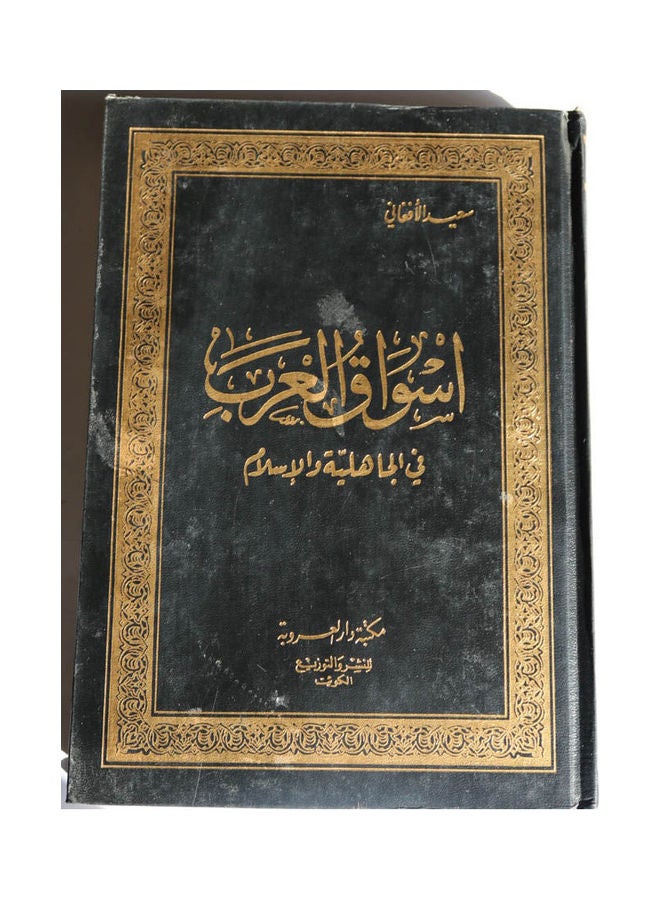 سعيد الأفغاني
اَسْوَاقُ الْعَرَبِ
في الجاهليّة والإسلام
مكتبة دار العروبة
للنشر والتوزيع
الكويت